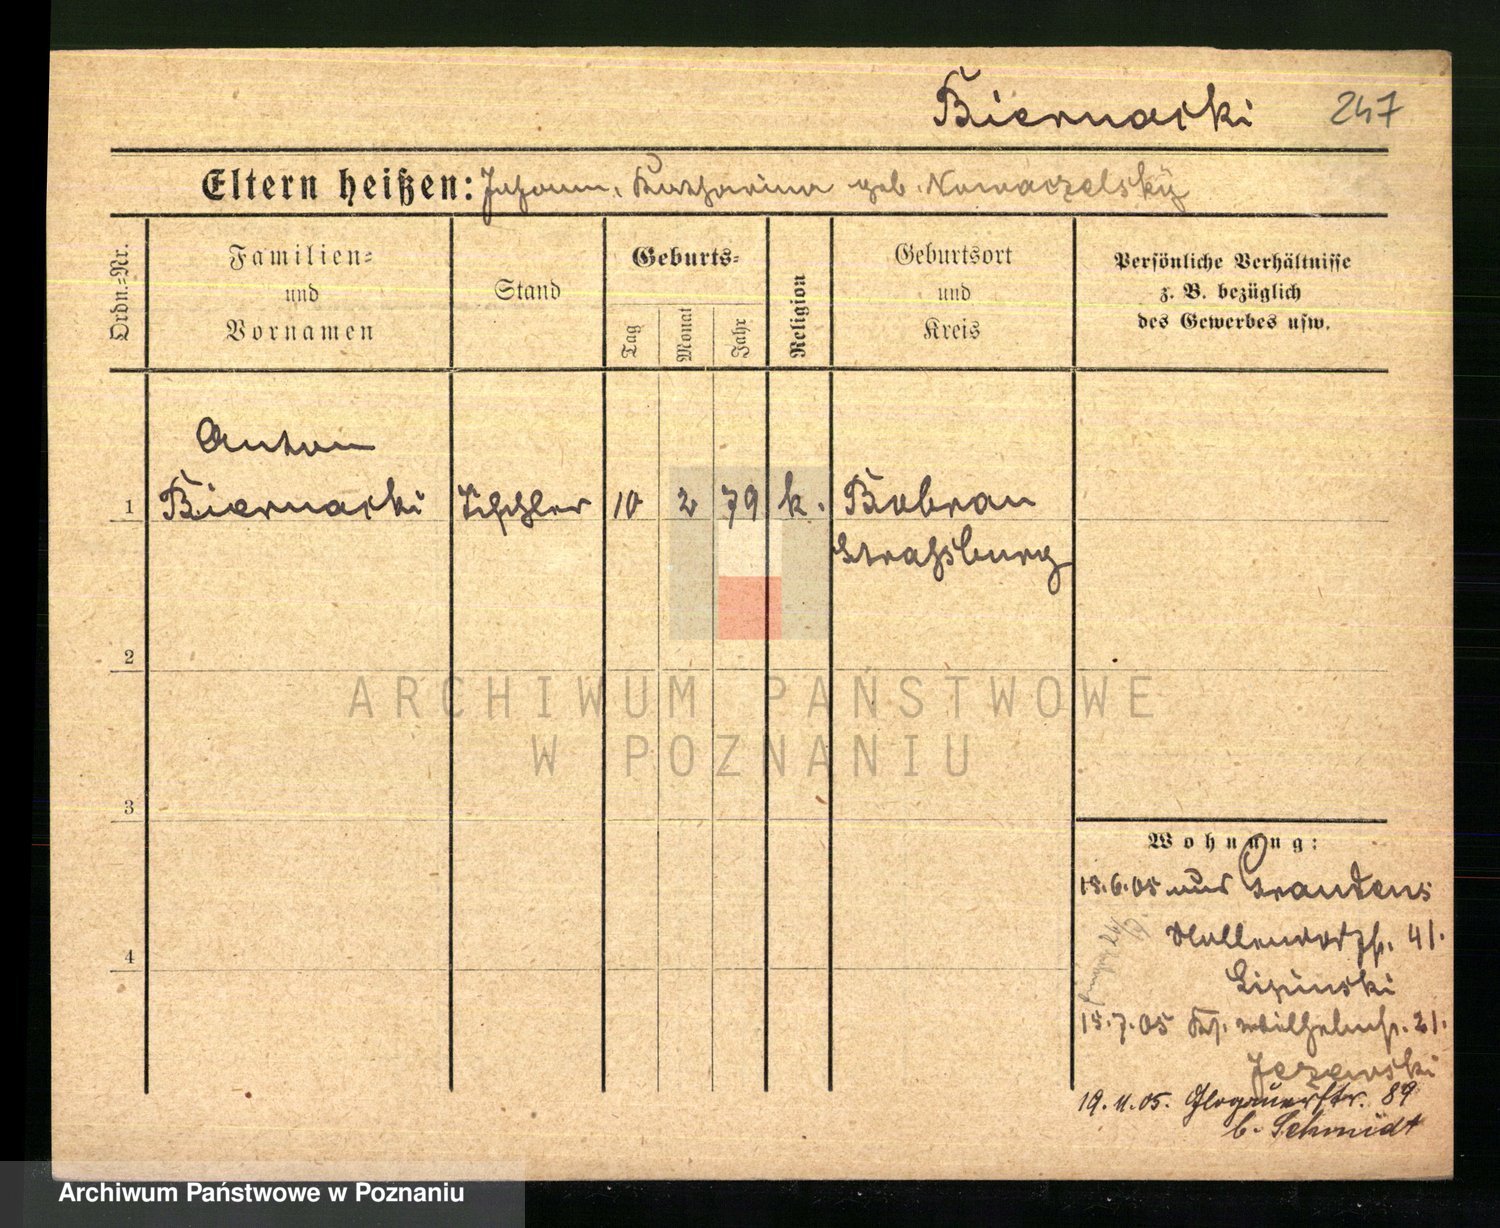 Biernacki 247
Eltern heißen: Johann, Katharina geb. Nowaczelsky
Ordn.-Nr.
Familien-
und
Vornamen
Stand
Geburts-
Tag
Monat
Jahr
Religion
Geburtsort
und
Kreis
Persönliche Verhältnisse
z. B. bezüglich
des Gewerbes usw.
Anton
1 Biernacki Tischler 10 2 79 k. Bobrau
Strassburg
2
ARCHIWUM PAŃSTWOWE
W POZNANIU
3
4
Wohnung:
15.6.05 aus Graudenz
Hallendorfstr. 41.
Lipinski
15.7.05 Kl. Wilhelmstr. 21.
Jezewski
19.11.05. Glogauerstr. 89
b. Schmidt
Archiwum Państwowe w Poznaniu